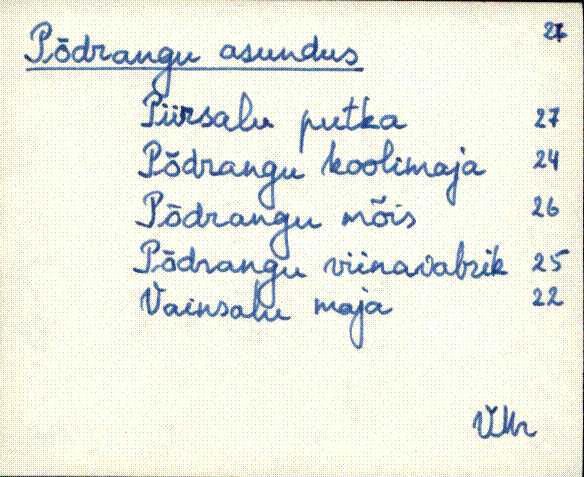 Põdrangu asundus
Piirsalu putka 27
Põdrangu koolimaja 24
Põdrangu mõis 26
Põdrangu viinavabrik 25
Vainsalu maja 22